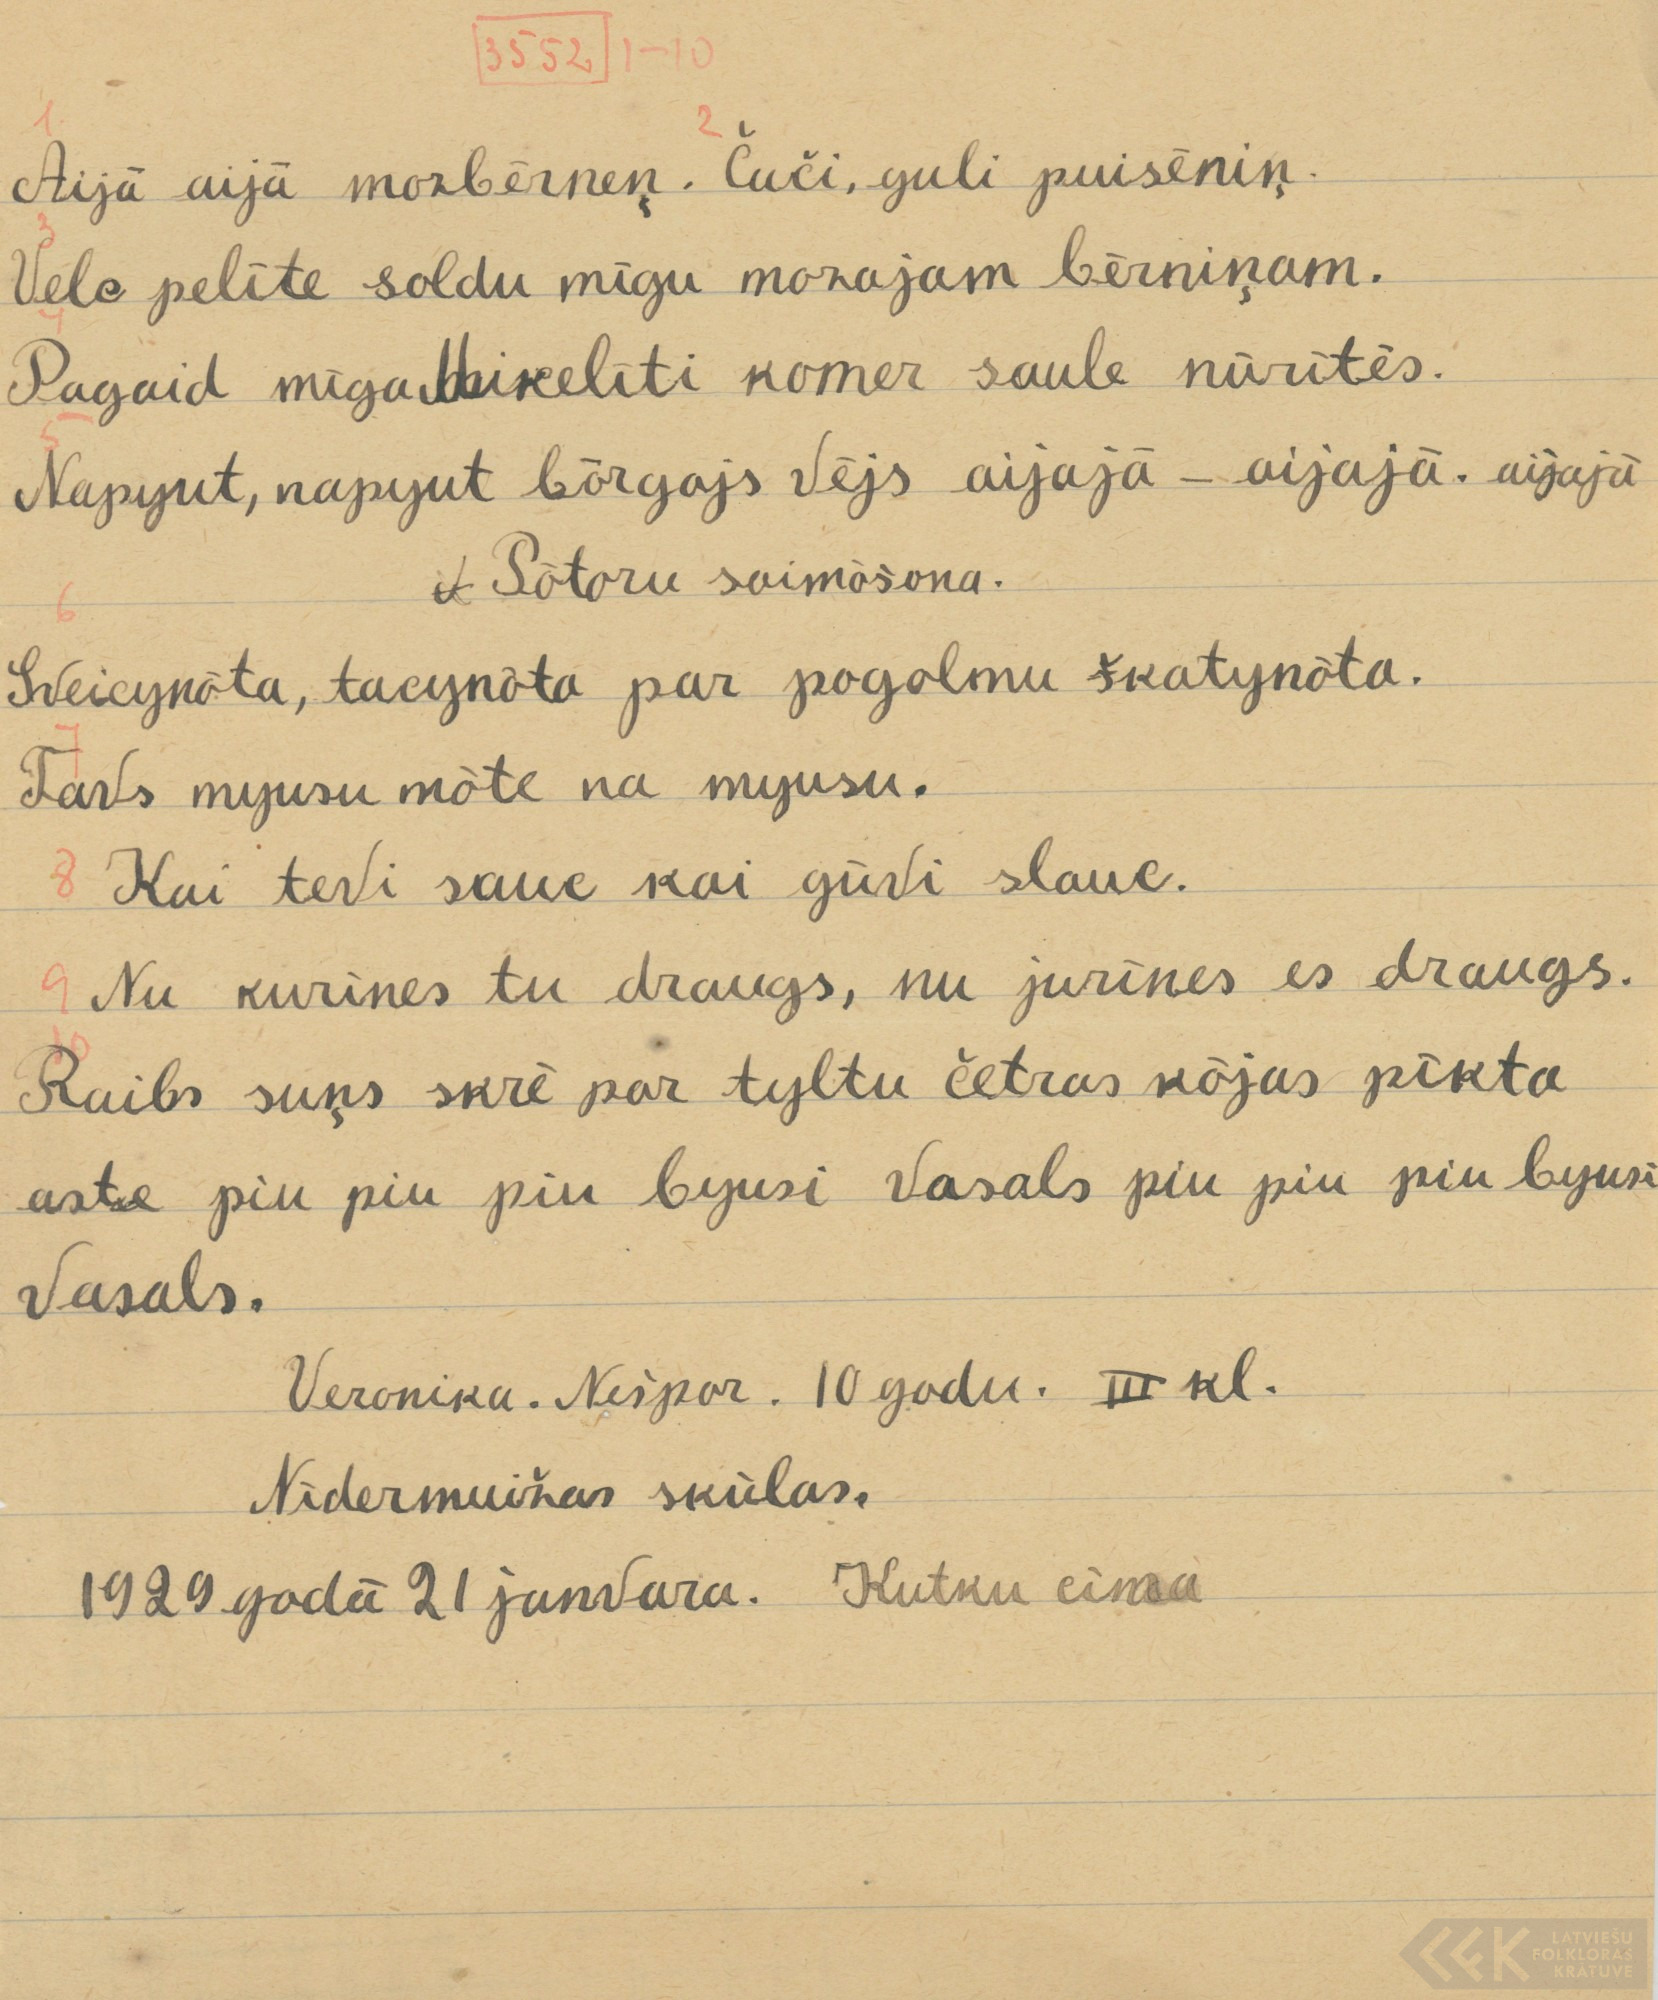 3552 1-10
1. 2
Aijā aijā mozbērneņ. Čuči, guli puisēniņ.
3
Velc pelīte soldu mīgu mozajam bērniņam.
4
Pagaid mīga Mikelīti komer saule nūrītēs.
5
Napyut, napyut bōrgajs vējs aijajā – aijajā. aijajā
Pōtoru soimōšona.
6
Sveicynōta, tacynōta par pogolmu škatynōta.
7
Tavs myusu mōte na myusu.
8 Kai tevi sauc kai gūvi slauc.
9 Nu kurīnes tu draugs, nu jurīnes es draugs.
10
Raibs suņs skrē par tyltu četras kōjas pīkta
aste piu piu piu byusi vasals piu piu piu byusi
vasals.
Veronika. Nešpor. 10 godu. III kl.
Nīdermuižas skūlas.
1929 godā 21 janvara. Kutku cima
LATVIEŠU
FOLKLORAS
KRĀTUVE